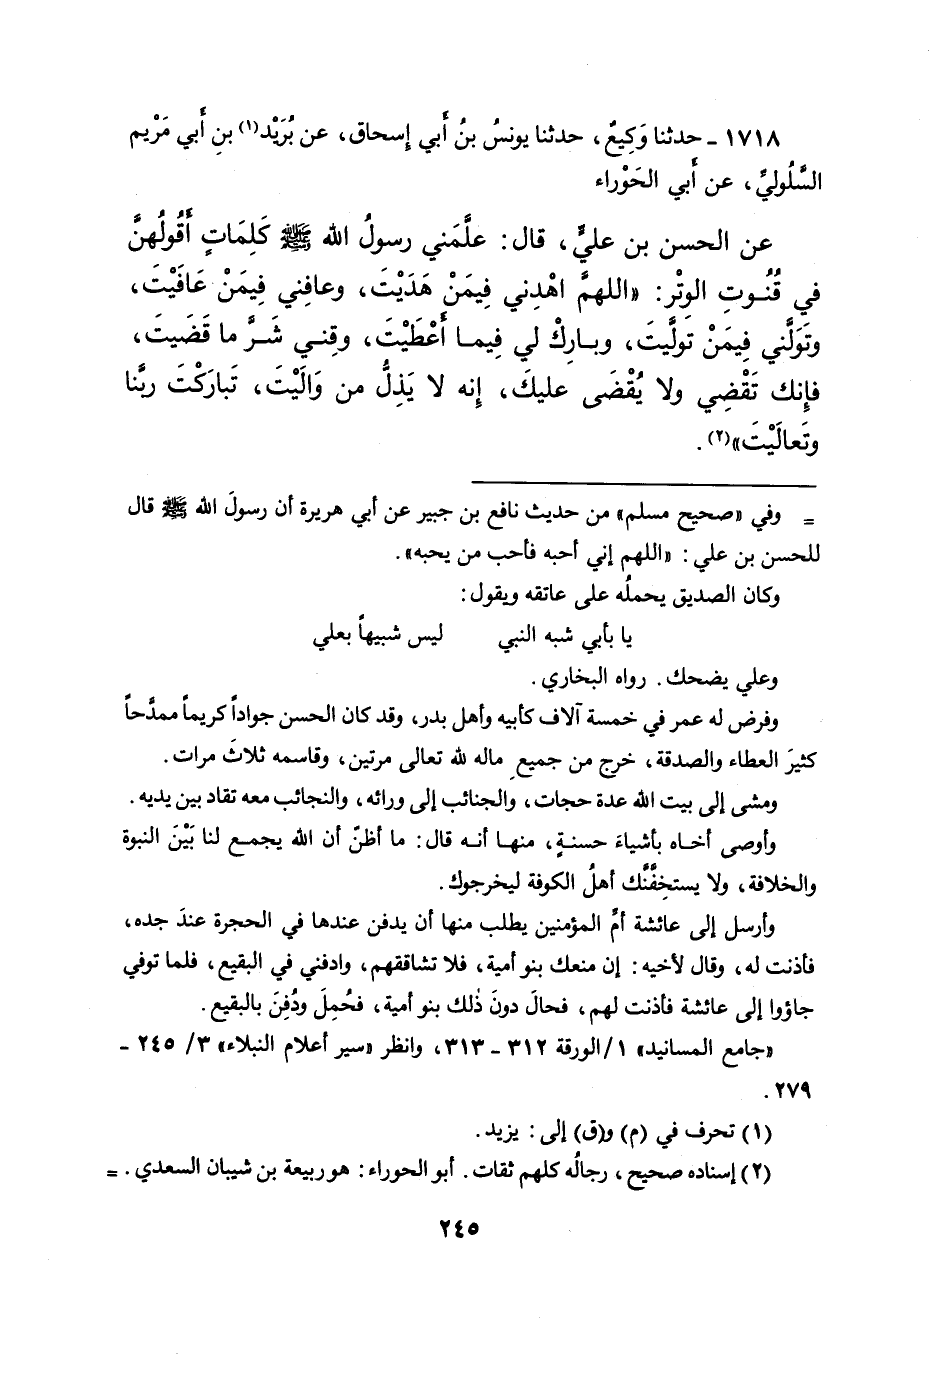 ١٧١٨ - حدثنا وَكِيعٌ، حدثنا يونسُ بنُ أَبي إسحاق، عن بُرَيْد(١) بنِ أَبي مَرْيم
السَّلُوليِّ، عن أَبي الحَوْراء
عن الحسن بن عليٍّ، قال: علَّمَني رسولُ الله ﷺ كَلِمَاتٍ أَقُولُهنَّ
في قُنُوتِ الوِتْر: «اللهمَّ اهْدِني فِيمَنْ هَدَيْتَ، وعافِني فِيمَنْ عَافَيْتَ،
وتَوَلَّني فِيمَنْ تولَّيتَ، وبارِكْ لي فِيما أَعْطَيْتَ، وقِني شَرَّ ما قَضَيتَ،
فإِنك تَقْضِي ولا يُقْضَى عليكَ، إِنه لا يَذِلُّ من وَالَيْتَ، تَبارَكْتَ ربَّنا
وتَعالَيْتَ»(٢).
= وفي «صحيح مسلم» من حديث نافع بن جبير عن أبي هريرة أن رسولَ الله ﷺ قال
للحسن بن علي: «اللهم إني أحبه فأحب من يحبه».
وكان الصديق يحملُه على عاتقه ويقول:
يا بأبي شبه النبي ليس شبيهاً بعلي
وعلي يضحك. رواه البخاري.
وفرض له عمر في خمسة آلاف كأبيه وأهل بدر، وقد كان الحسن جواداً كريماً ممدَّحاً
كثيرَ العطاء والصدقة، خرج من جميعِ ماله لله تعالى مرتين، وقاسمه ثلاثَ مرات.
ومشى إلى بيت الله عدة حجات، والجنائب إلى ورائه، والنجائب معه تقاد بين يديه.
وأوصى أخاه بأشياءَ حسنةٍ، منها أنه قال: ما أظنّ أن الله يجمع لنا بَيْنَ النبوة
والخلافة، ولا يستخِفَّنَّك أهلُ الكوفة ليخرجوك.
وأرسل إلى عائشة أمِّ المؤمنين يطلب منها أن يدفن عندها في الحجرة عندَ جده،
فأذنت له، وقال لأخيه: إن منعك بنو أمية، فلا تشاققهم، وادفني في البقيع، فلما توفي
جاؤوا إلى عائشة فأذنت لهم، فحالَ دونَ ذٰلك بنو أمية، فحُمِلَ ودُفِنَ بالبقيع.
«جامع المسانيد» ١/الورقة ٣١٢ - ٣١٣، وانظر «سير أعلام النبلاء» ٣/ ٢٤٥ -
٢٧٩.
(١) تحرف في (م) و(ق) إلى: يزيد.
(٢) إسناده صحيح، رجالُه كلهم ثقات. أبو الحوراء: هو ربيعة بن شيبان السعدي. =
٢٤٥